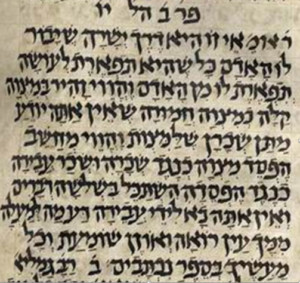 פרב הל יו
ר׳אומ׳ אי זו היא דרך ישרה שיבור
לו האדם כל שהיא תפארת לעושה
תפארת לו מן האדם והווי זהיר במצוה
קלה כמצוה חמורה שאין אתה יודע
מתן שכרן שלמצות והווי מחשב
הפסד מצוה כנגד שכרה ושכר עבירה
כנגד הפסדה השתכל בשלשה דברים
ואין אתה בא לידי עבירה דע מה למעלה
ממך עין רואה ואוזן שומעת וכל
מעשיך בספר נכתבים ב רבן גמליא